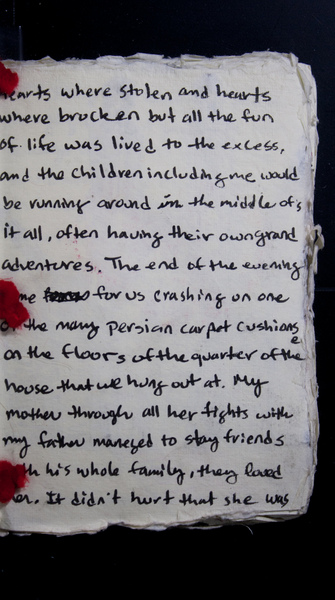 hearts where stolen and hearts
where brocken but all the fun
of life was lived to the excess,
and the children including me would
be running around in the middle of
it all, often having their own grand
adventures. The end of the evening
for us crashing on one
the many Persian carpet cushions
on the floors of the quarter of the
house that we hung out at. My
mother through all her fights with
my father maneged to stay friends
his whole family, they loved
her. It didn't hurt that she was